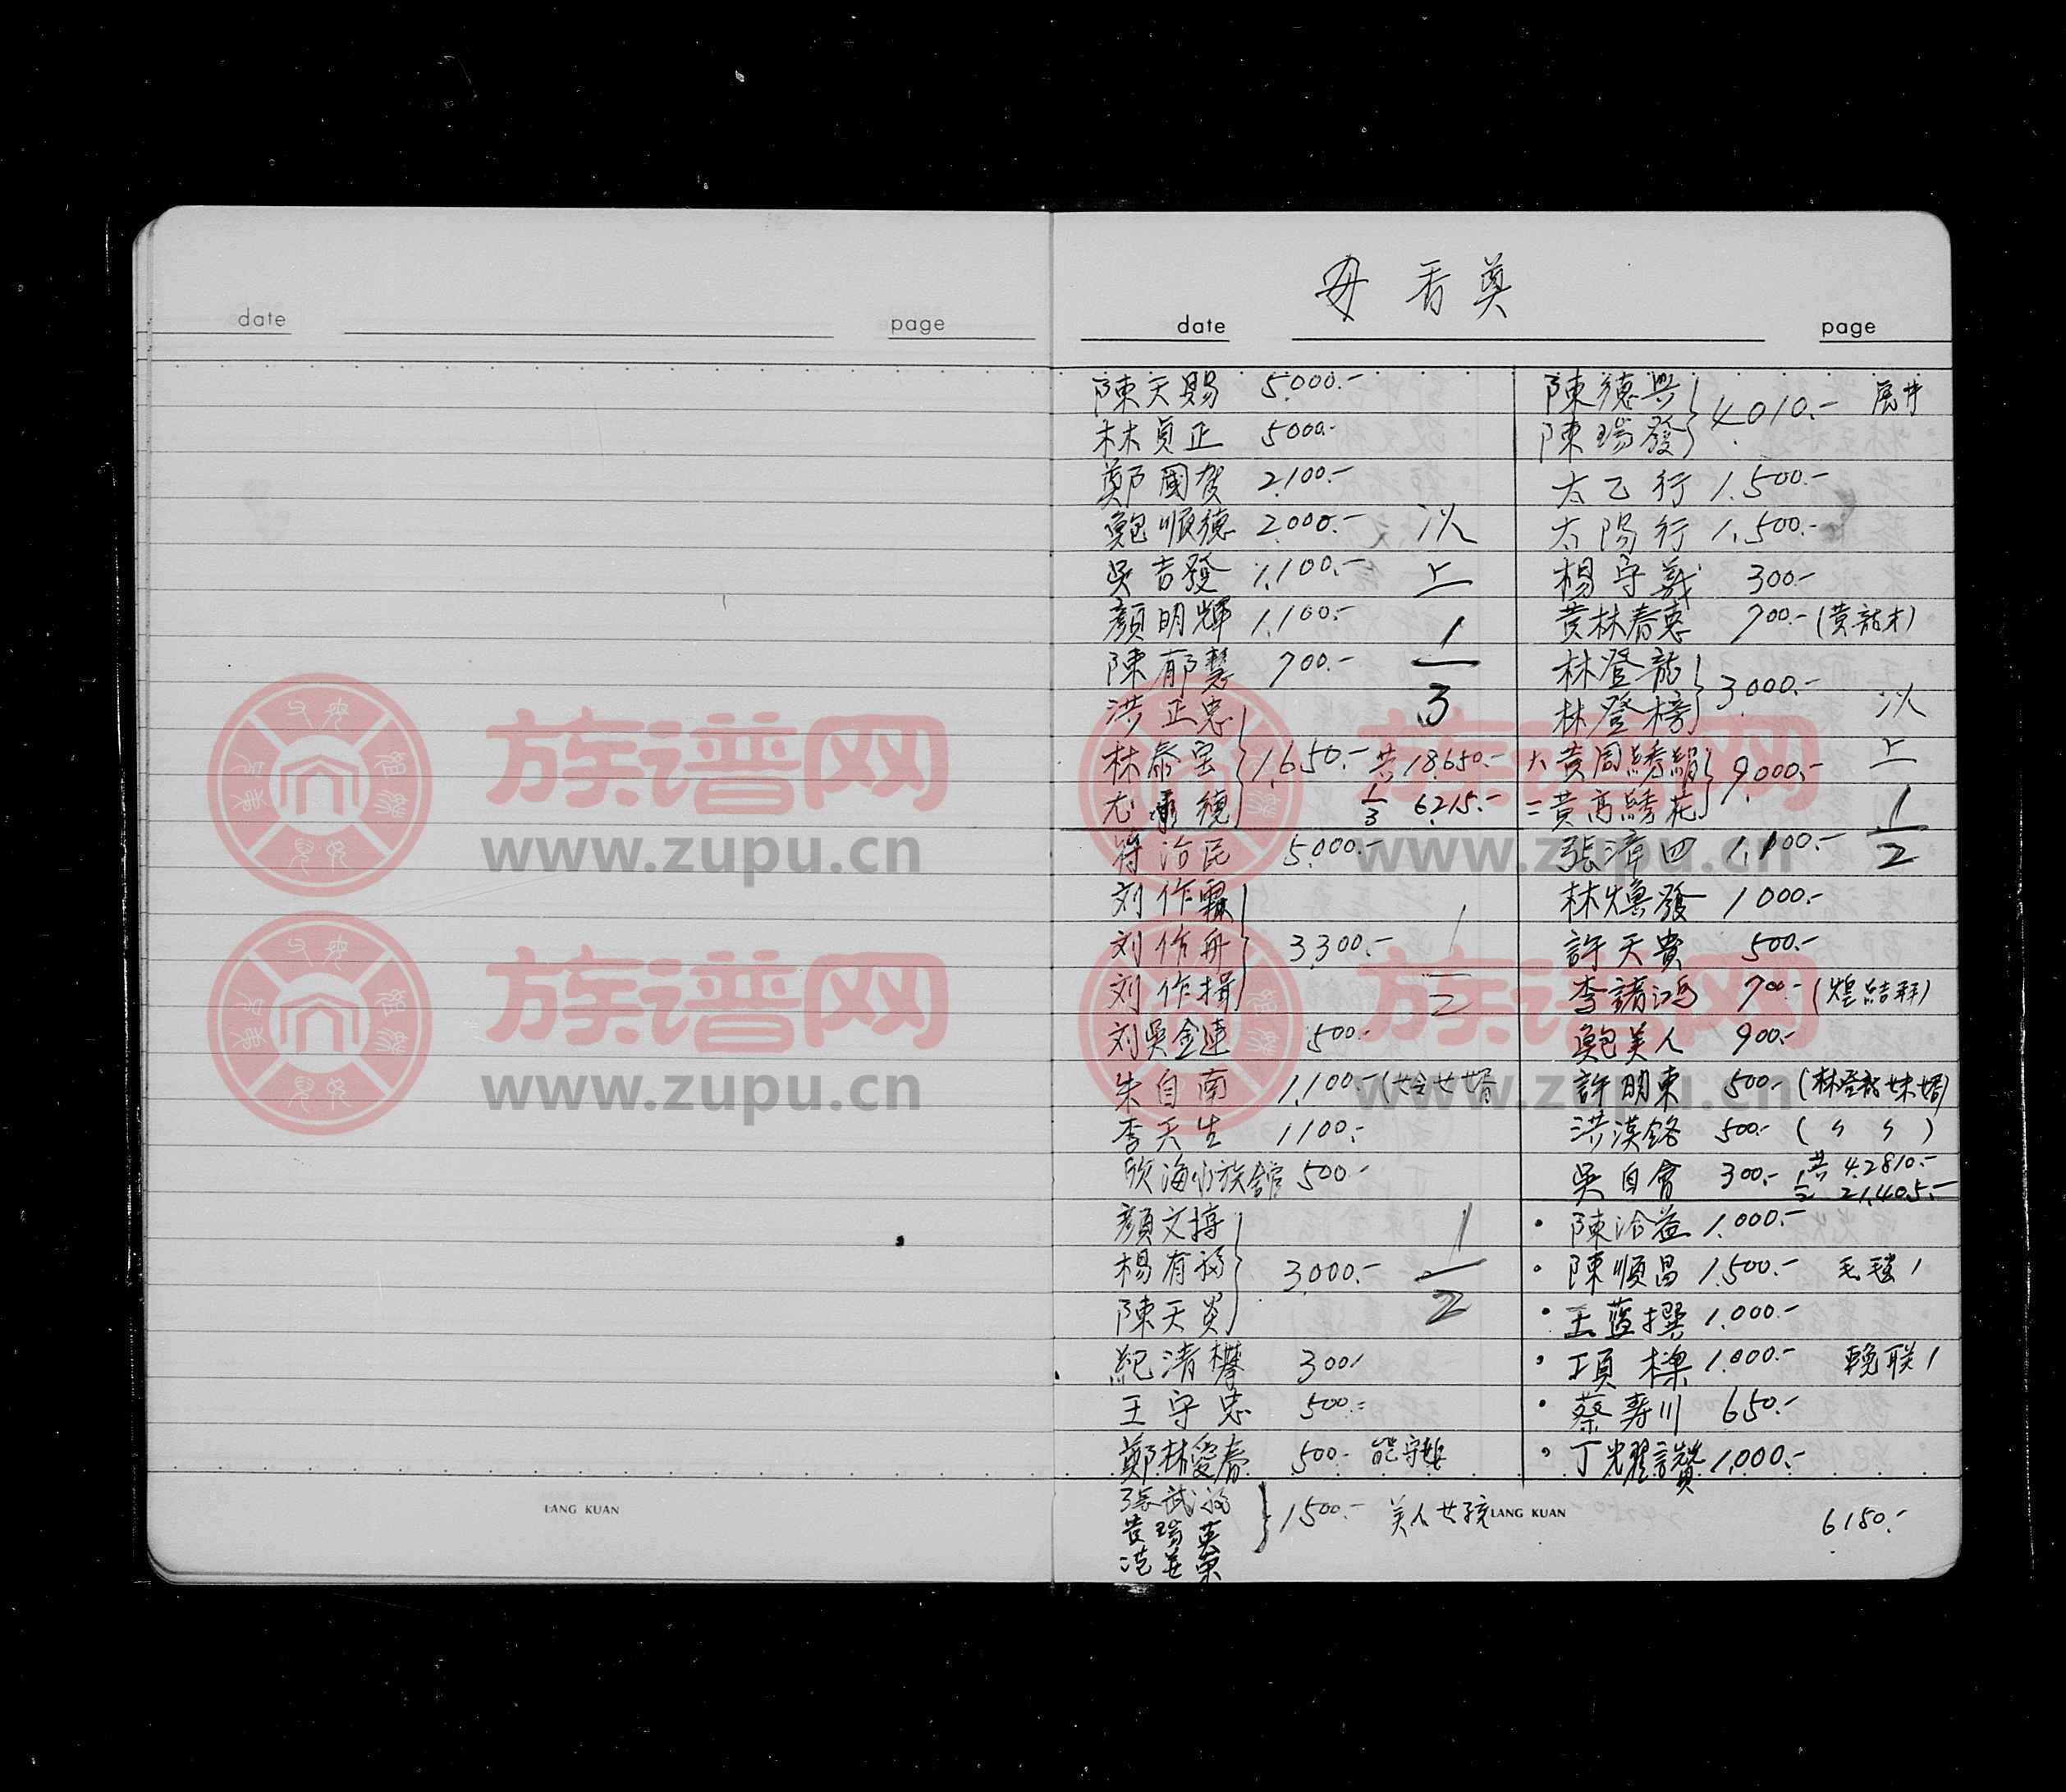 date
page
母香奠
date
page
陳天賜 5,000.-
林貞正 5000.-
鄭國賀 2,100.-
鮑順德 2,000.- 以
吳吉發 1,100.- 上
顏明輝 1,100.- 1
陳郁慧 700.- —
洪正忠 3
林泰宝 1,650.- 共18,650.-
尤承德 1/3 6,215.-
符治民 5,000.-
刘作霖 1
刘作舟 3,300.- —
刘作揖 2
刘吳金蓮 500.-
朱自南 1,100.-(姈女婿
李天生 1100.-
欣海水族舘 500.-
顏文搏 1
楊有福 3,000.- —
陳天炎 2
紀清攀 300.-
王守忠 500.-
鄭林愛春 500.- 能守
張武福
黃瑞英 1500.- 美人女孩
陳德興
陳瑞發 4,010.-
太乙行 1,500.-
太陽行 1,500.-
楊守義 300.-
黃林春惠 700.-(黃龍才)
林登龍
林登榜 3,000.- 以
大黃周綉絹 9,000.- 上
二黃高綉花 1
張漳四 1,100.- 2
林煥發 1000.-
許天貴 500.-
李請鴻 700.-(煌結拜)
鮑美人 900.-
許明東 500.-(林登龍妹婿)
洪漢銘 500.- ( 〃 〃 )
吳自會 300.- 共 42,810.-
1/2 21,405.-
陳洽益 1,000.-
陳順昌 1,500.- 毛毯1
王蓝撰 1,000.-
項樑 1,000.- 輓联1
蔡寿川 650.-
丁光耀 1,000.-
6150.-
LANG KUAN
LANG KUAN
族谱网
www.zupu.cn
族谱网
www.zupu.cn
族谱网
www.zupu.cn
族谱网
www.zupu.cn